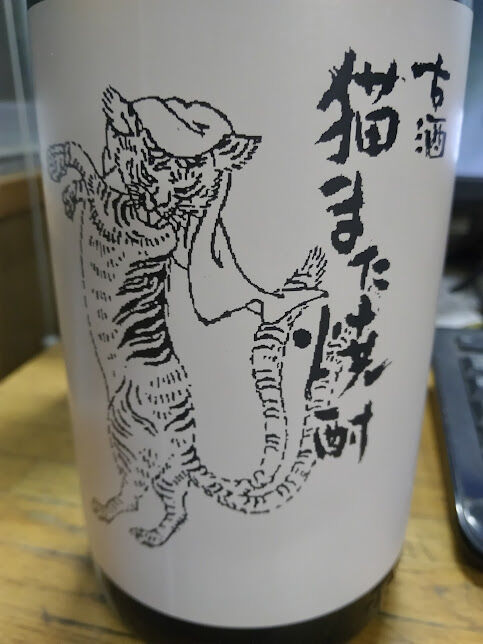 古酒
猫また焼酎